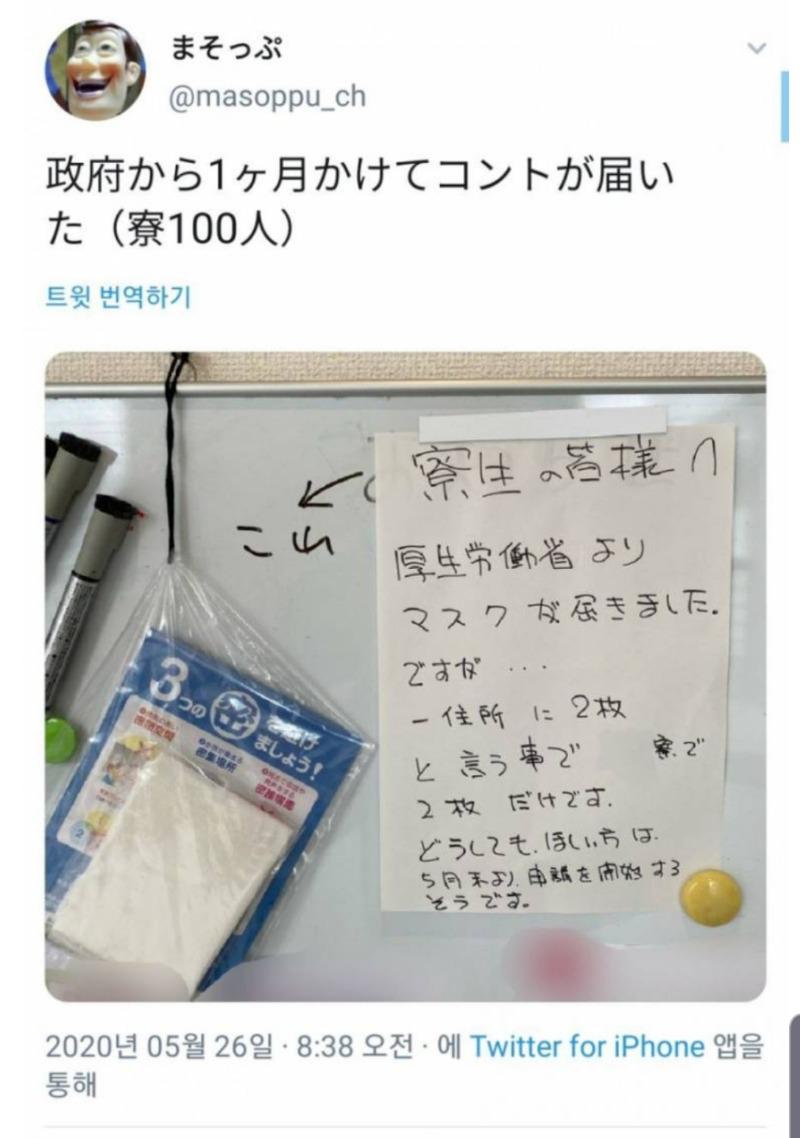 まそっぷ
@masoppu_ch
政府から1ヶ月かけてコントが届い
た（寮100人）
트윗 번역하기
寮生の皆様へ
これ
厚生労働省より
マスクが届きました。
ですが・・・
一住所に2枚
と言う事で 寮で
2枚だけです.
どうしても、ほしい方は
5月末より、申請を開始する
そうです。
3つの密を避け
ましょう!
密閉空間
密集場所
密接場面
2020년 05월 26일 · 8:38 오전 · 에 Twitter for iPhone 앱을
통해